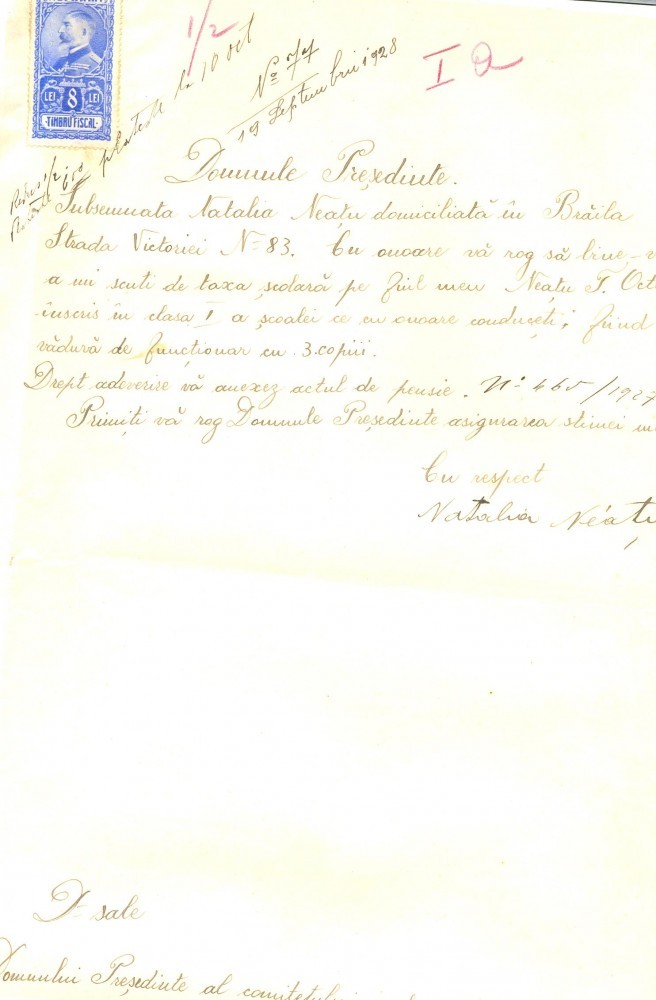 LEI 8 LEI
TIMBRU FISCAL
1/2
plateste la 10 oct
Nº 77
19 Septembrie 1928
I a
Domnule Președinte.
Subsemnata Natalia Neațu domiciliată în Brăila
Strada Victoriei Nº 83. Cu onoare vă rog să bine-v
a mi scuti de taxa școlară pe fiul meu Neațu T. Oct
înscris în clasa I a școalei ce cu onoare conduceți; fiind
văduvă de funcționar cu 3 copii.
Drept adeverire vă anexez actul de pensie. Nº 465/1927
Primiți vă rog Domnule Președinte asigurarea stimei
Cu respect
Natalia Neațu
D-sale
Domnului Președinte al comitetului